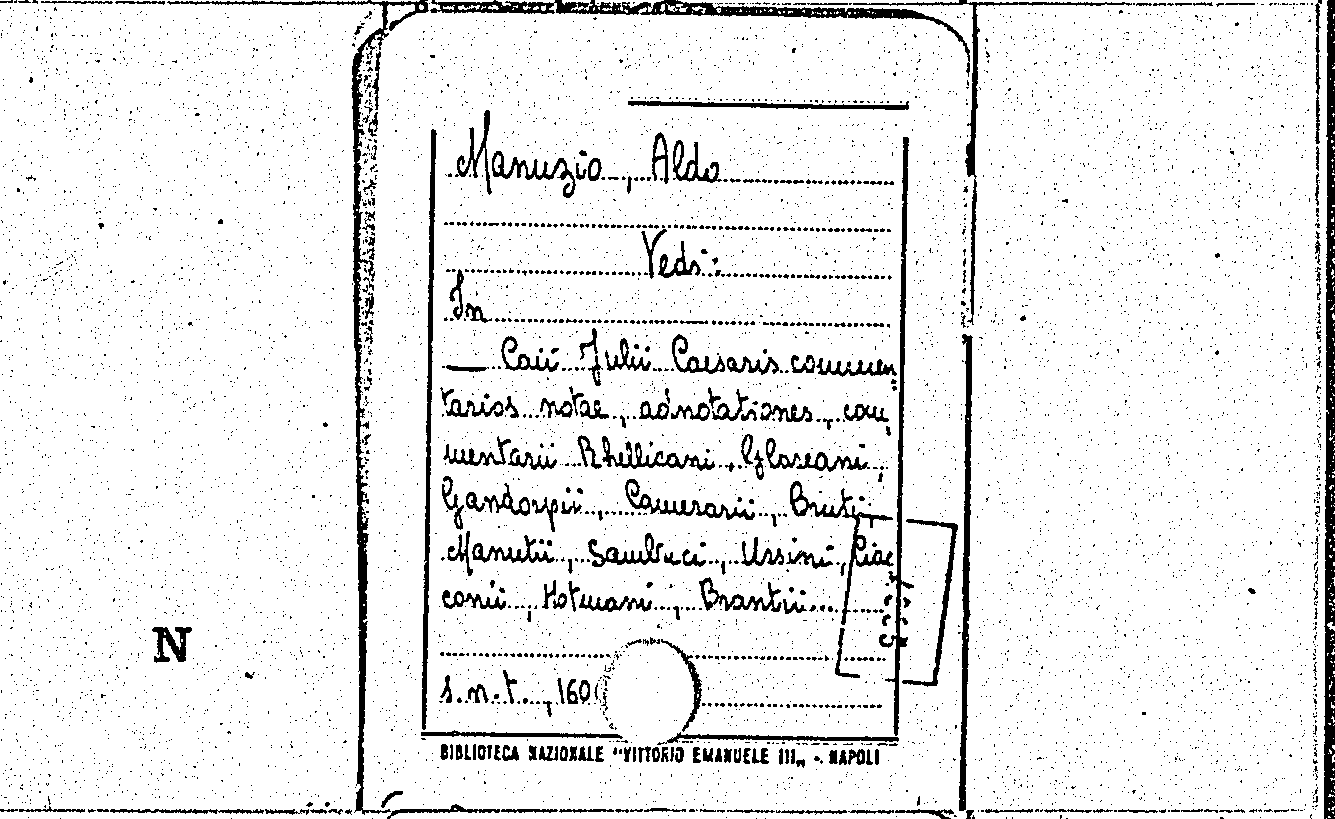 Manuzio, Aldo
Vedi:
In
— Caii Julii Caesaris commen
tarios notae, adnotationes, com
mentarii Rhellicani, Glareani,
Gandorpii, Camerarii, Bruti,
Manutii, Sambuci, Ursini, Ciac
conii, Hotmani, Brantii...
N
s.n.t., 160
BIBLIOTECA NAZIONALE "VITTORIO EMANUELE III„ - NAPOLI